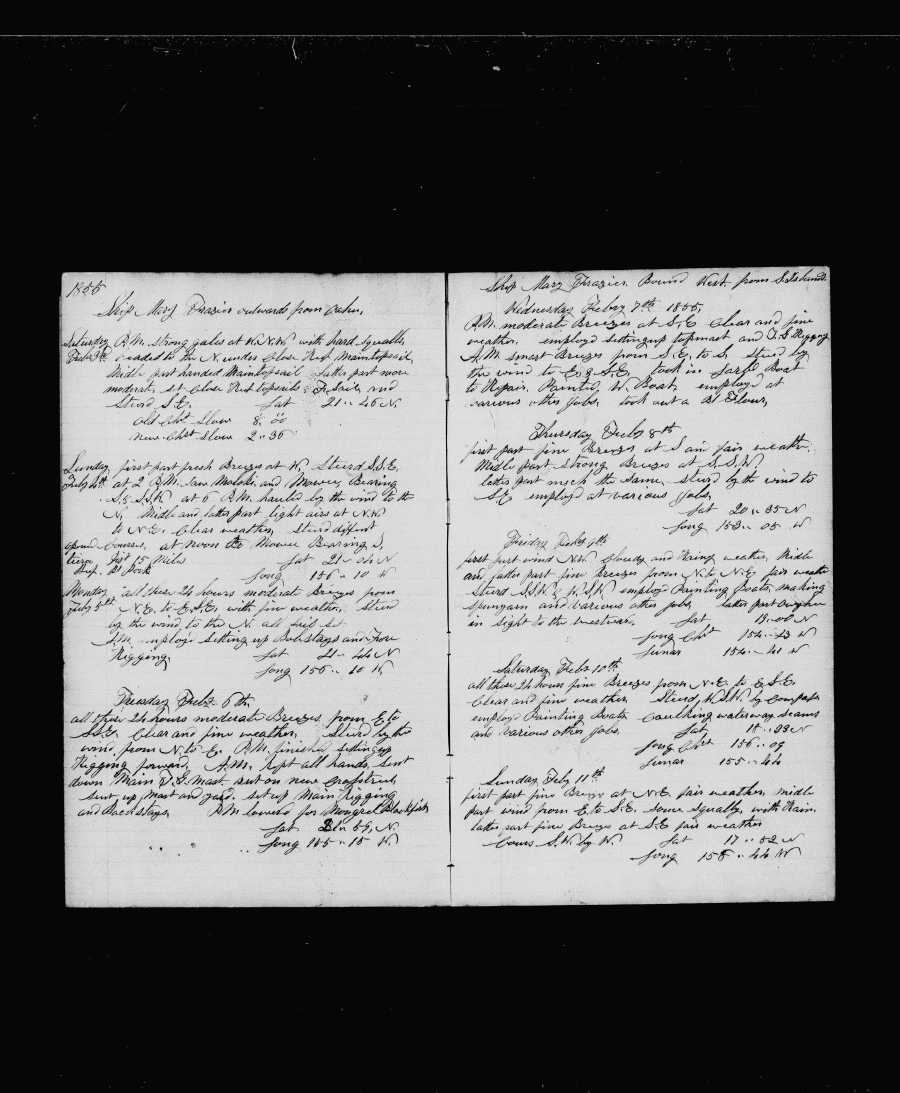 1855
Ship Mary Frazier outwards from Oahu,
Saturday P.M. Strong gales at W.N.W. with hard squalls,
Feb 3d headed to the N. under Close Reef Maintopsail
Midle part handed Maintopsail latter part more
moderate, set Close Reef topsails & F. Sail, and
Steerd S.E. Lat 21 " 46 N.
Old Cht Slow 8. 00
new Chst Slow 2 " 36
Sunday first part fresh Breezes at W, Steerd S.S.E.
Feby 4th at 2 P.M. Saw and Mowee, Bearing
S & S.S.W at 6 P.M. hauled by the wind to the
N, Midle and latter part light airs at N.W.
to N.E. Clear weather, Steerd differt
opend Courses, at noon the Mowee Bearing S,
Dist 15 Miles Lat 21 " 04 N
Pork Long 156 " 10 W
Monday all these 24 hours moderate Breezes from
Feby 5th N.E. to E.S.E. with fine weather, Steerd
by the wind to the N. all sail set
A.M. employd Setting up Bobstays and Fore
Rigging. Lat 21 " 44 N
Long 156 " 10 W,
Tuesday Feby 6th,
all these 24 hours moderate Breezes, from E to
S.S.E. Clear and fine weather, Steerd by the
wind, from N. to E. P.M. finished setting up
Rigging forward, A.M. kept all hands, Sent
down Main T.G. Mast. put on new Crosstrees,
Sent up Mast and yard. set up Main Rigging
and Backstays. P.M. lowered for Mongrel Blackfish
Lat 21 " 59, N.
Long 155 " 15 W.
Ship Mary Frazier, Bound West from S. Islands
Wednesday Feby 7th 1855,
P.M. moderate Breezes at S.E Clear and fine
weather, employd setting up topmast and T.G. Rigging
A.M. smart Breezes from S.E. to S. Steerd by
the wind to E & S.E, took in Larbd Boat
to Repair, Painted W. Boat, employd at
various other Jobs, took out a Bl Flour,
Thursday Feby 8th
first part fine Breezes at S and fair weather.
Midle part strong Breezes at S.S.W.
latter part much the same. steerd by the wind to
S.E employd at various Jobs,
Lat 20 " 35 N
Long 153 " 05 W
Friday Feby 9th
first part wind N.W. Cloudy and Rainy weather, Midle
and latter part fine Breezes from N. to N.E. fair weather
Steerd S.S.W. & W.S.W employd Painting Boats, making
spunyarn and various other jobs, latter part Owyhee
in sight to the westward. Lat 19 " 00 N
Long Cht 154 " 43 W
Lunar 154 " 41 W
Saturday Feby 10th
all these 24 hours fine Breezes from N.E. to E.S.E.
Clear and fine weather, Steerd W.S.W. by Compass
employd Painting Boats, Caulking waterway seams
and various other jobs, Lat 18 " 39 N
Long Cht 156 " 09
Lunar 155 " 44
Sunday Feby 11th
first part fine Breezes at N.E. fair weather, midle
part wind from E to S.E. some squally, with Rain.
latter part fine Breezes at S.E fair weather
Cours S.W. by W. Lat 17 " 52 N
Long 158 " 44 W